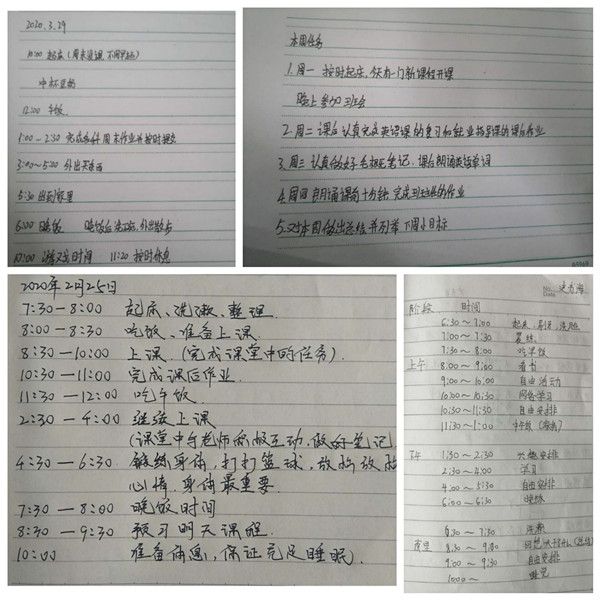 2020.3.29
10:00 起床
中杯豆奶
12:00 午饭
1:00-2:30 完成各科周末作业并按时提交
3:00~5:00 外出买东西
5:30
6:00 晚饭 晚饭后洗碗,外出散步
10:00 时间 11:20 按时休息
本周任务
1.周一 按时起床,门新课程开课
晚上参加班会
2.周二 课后认真完成英语课的复习和就业指导课的课后作业
3.周三 认真做好毛概笔记,课后朗诵英语单词
4.周四 朗诵课前十分钟 完成的作业
5.对本周做出总结 并列举下周小目标
2020年2月25日
7:30-8:00 起床、洗漱、整理
8:00-8:30 吃饭、准备上课.
8:30-10:00 上课.(完成课堂中的任务).
10:30-11:00 完成课后作业.
11:30-12:00 吃午饭.
2:30-4:00 继续上课
(课堂中与老师积极互动,做好笔记
4:30-6:30 锻炼身体,打打篮球,放松放松
心情,身体最重要.
7:30-8:00 晚饭时间
8:30-9:30 预习明天课程.
10:00 准备休息,保证充足睡眠.
No.
Date
阶段 时间
6:30~7:00 起床,刷牙,洗脸
7:00~7:30 晨练
7:30~8:00 吃早饭
上午 8:00~9:00 看书
9:00~10:00 自由活动
10:00~10:30 网络学习
10:30~11:30 自由安排
11:30~1:00 午饭
下午 1:30~2:30 安排
2:30~4:00 学习
4:00~5:30 自由安排
6:00~6:30 晚饭
6:30~7:30 洗漱
夜里 8:30~9:00
9:00~9:30 自由安排
10:00~ 睡觉